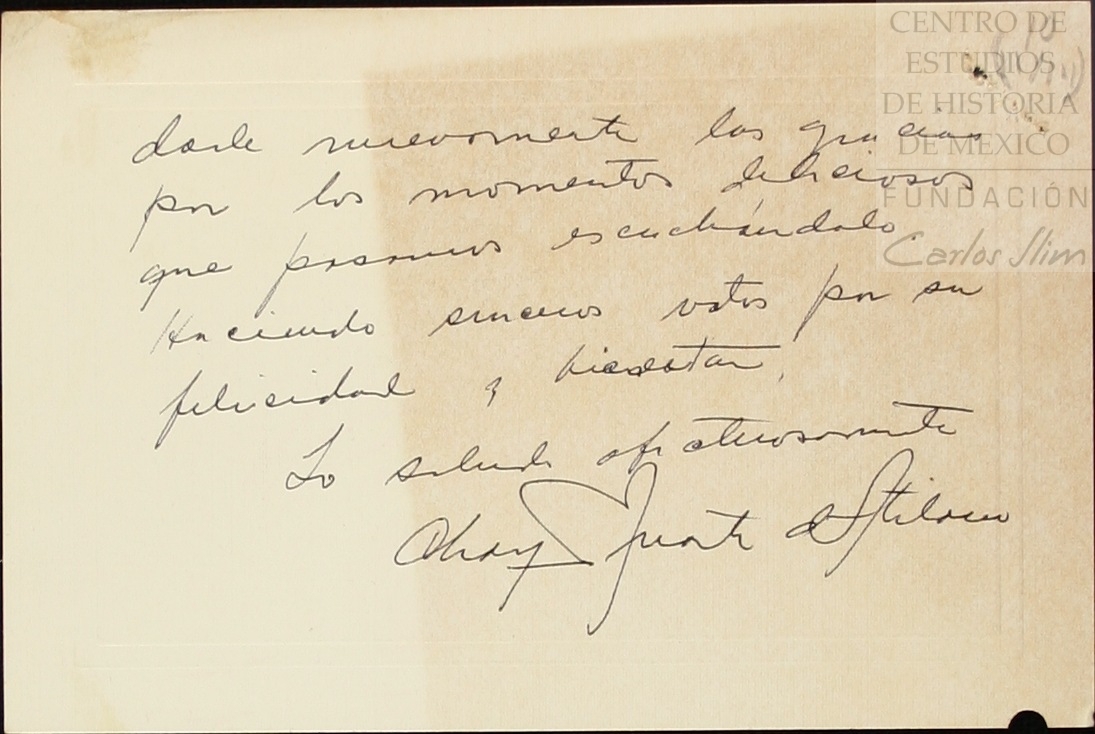 CENTRO DE
ESTUDIOS
DE HISTORIA
DE MEXICO
FUNDACIÓN
Carlos Slim
darle nuevamente las gracias
por los momentos deliciosos
que pasamos escuchándolo.
Haciendo sinceros votos por su
felicidad y bienestar,
Lo saluda afectuosamente